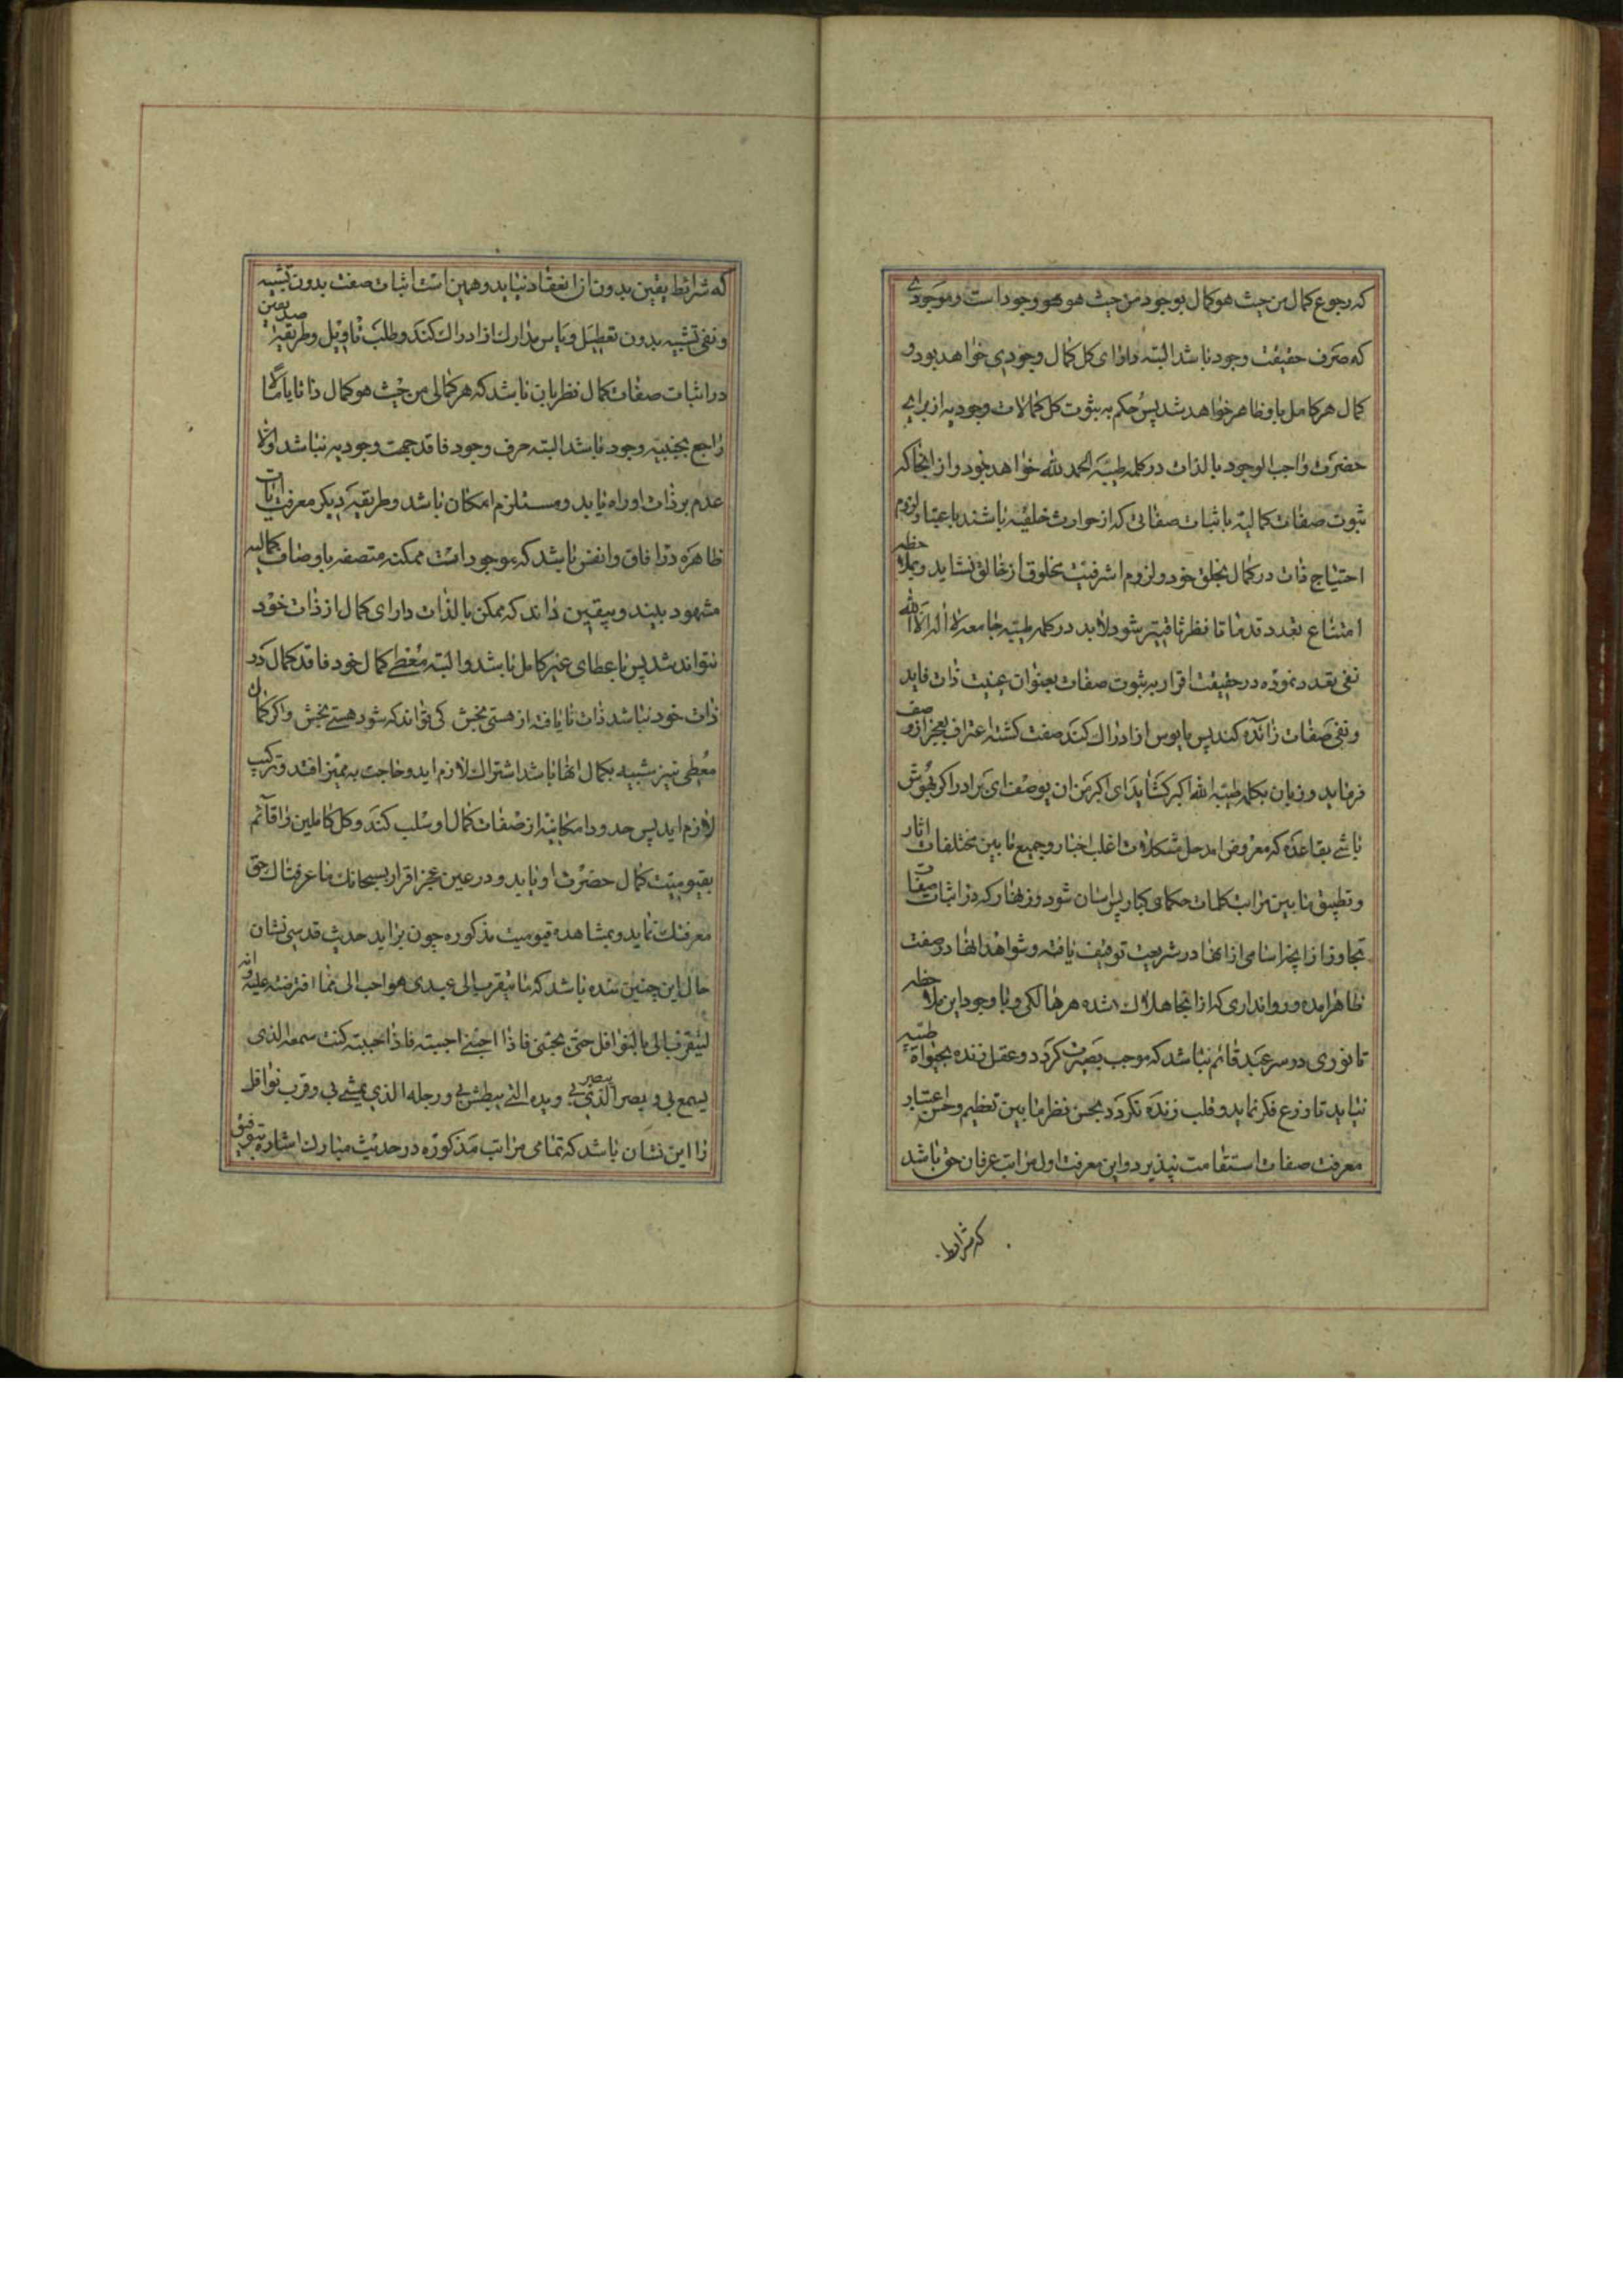 که رجوع کمال من حیث هو کمال بوجود من حیث هو هو وجود است و موجودی
که صرف حقیقت وجود باشد البته دارای کل کمال وجودی خواهد بود و
کمال هر کامل باو ظاهر خواهد شد پس حکم به ثبوت کل کمالات وجودیه از برای
حضرت واجب الوجود بالذات در کلمه طیبه الحمد لله خواهد نمود و از انجا که
ثبوت صفات کمالیه باثبات صفاتی که از حوادث خلقیه باشند باعتبار لزوم
احتیاج ذات در کمال بخلق خود و لزوم اشرفیت مخلوق از خالق نشاید و بملاحظه
امتناع تعدد قدما تا نظر ثاقبتر شود لابد در کلمه طیبه جامعه لا اله الا الله
نفی تعدد نموده در حقیقت اقرار به ثبوت صفات بعنوان عینیت ذات فاید
و نفی صفات زائده کند پس مایوس از ادراک کنه صفت کشته اعتراف بعجز از وصف
فرماید و زبان بکلمه طیبه الله اکبر کشاید ای اکبر من ان یوصف ای برادر اکر بهوش
باشی بقاعده که معروض امد حل مشکلات اغلب اخبار و جمیع ما بین مختلفات اثار
و تطبیق ما بین مراتب کلمات حکمای کبار پس اسان شود و زنهار که در اثبات صفات
تجاوز از انچه اسامی از انها در شریعت توقیف یافته و شواهد انها در صفت
ظاهر امده و روا نداری که از انجا هلاک شده هر هالکی و با وجود این ملاحظه
تا نوری در سر عبد قائم نباشد که موجب بصیرت کردد و عقل زنده بحیوة طیبه
نیاید تا زرع فکر نماید و قلب زنده نکردد بحسن نظر ما بین تعظیم و حسن اعتبار
معرفت صفات استقامت نپذیرد و این معرفت اول مراتب عرفان حق باشد
که شرایط
که شرائط یقین بدون ان انعقاد نیابد و همین است اثبات صفت بدون تشبیه
و نفی تشبیه بدون تعطیل و یاس مدارک از ادراک کنه و طلب تاویل و طریقه صدیقین
در اثبات صفات کمال نظر بان باشد که هر کمالی من حیث هو کمال ذاتا یا مآلا
راجع بحیثیه وجود باشد البته صرف وجود فاقد جهت وجودیه نباشد و الا
عدم بر ذات او راه یابد و مستلزم امکان باشد و طریقه دیکر معرفت ایات
ظاهره در افاق و انفس باشد که موجودات ممکنه متصفه باوصاف کمالیه
مشهود بیند و بیقین داند که ممکن بالذات دارای کمال از ذات خود
نتواند شد پس باعطای غیر کامل باشد و البته معطی کمال خود فاقد کمال در
ذات خود نباشد ذات نایافته از هستی بخش کی تواند که شود هستی بخش و اکر کمال
معطی نیز شبیه بکمال انها باشد اشتراک لازم اید و حاجت به ممیز افتد و ترکیب
لازم اید پس حدود امکانیه از صفات کمال او سلب کند و کل کاملین را قائم
بقیومیت کمال حضرت او یابد و در عین عجز اقرار بسبحانک ما عرفناک حق
معرفتک نماید و بمشاهده قیومیت مذکوره چون براید حدیث قدسی نشان
حال این چنین بنده باشد که ما یتقرب الی عبدی هو احب الی مما افترضته علیه و انه
لیتقرب الی بالنوافل حتی یحبنی فاذا احبنی احببته فاذا احببته کنت سمعه الذی
یسمع بی و بصر الذی یبصر بی و یده التی یبطش بی و رجله الذی یمشی بی و قرب نوافل
را این نشان باشد که تمامی مراتب مذکوره در حدیث مبارک اشاره بتوفیق